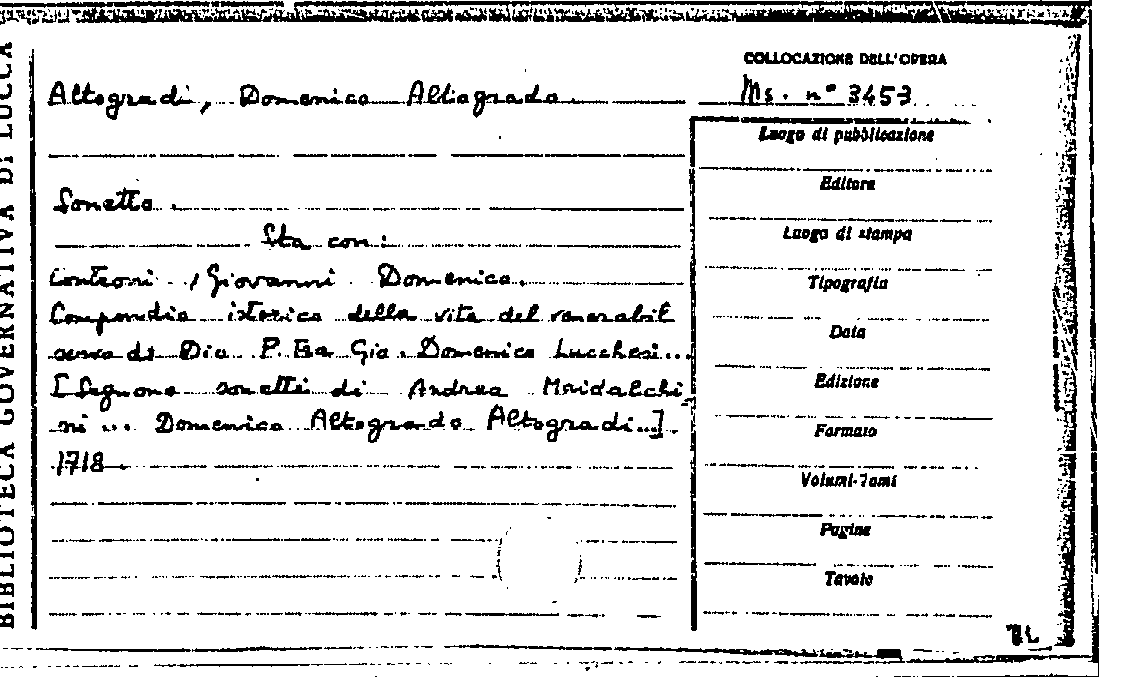 BIBLIOTECA GOVERNATIVA DI LUCCA
COLLOCAZIONE DELL'OPERA
Altogradi, Domenico Altogrado
Ms. n° 3453
Luogo di pubblicazione
Editore
Sonetto.
Luogo di stampa
Sta con:
Controni, Giovanni Domenico.
Tipografia
Compendio istorico della vita del venerabil
Data
servo di Dio P. Gio. Domenico Lucchesi...
Edizione
[Segnono sonetti di Andrea
Formato
ni ... Domenico Altogrado Altogradi...].
1718
Volumi-Tomi
Pagine
Tavole